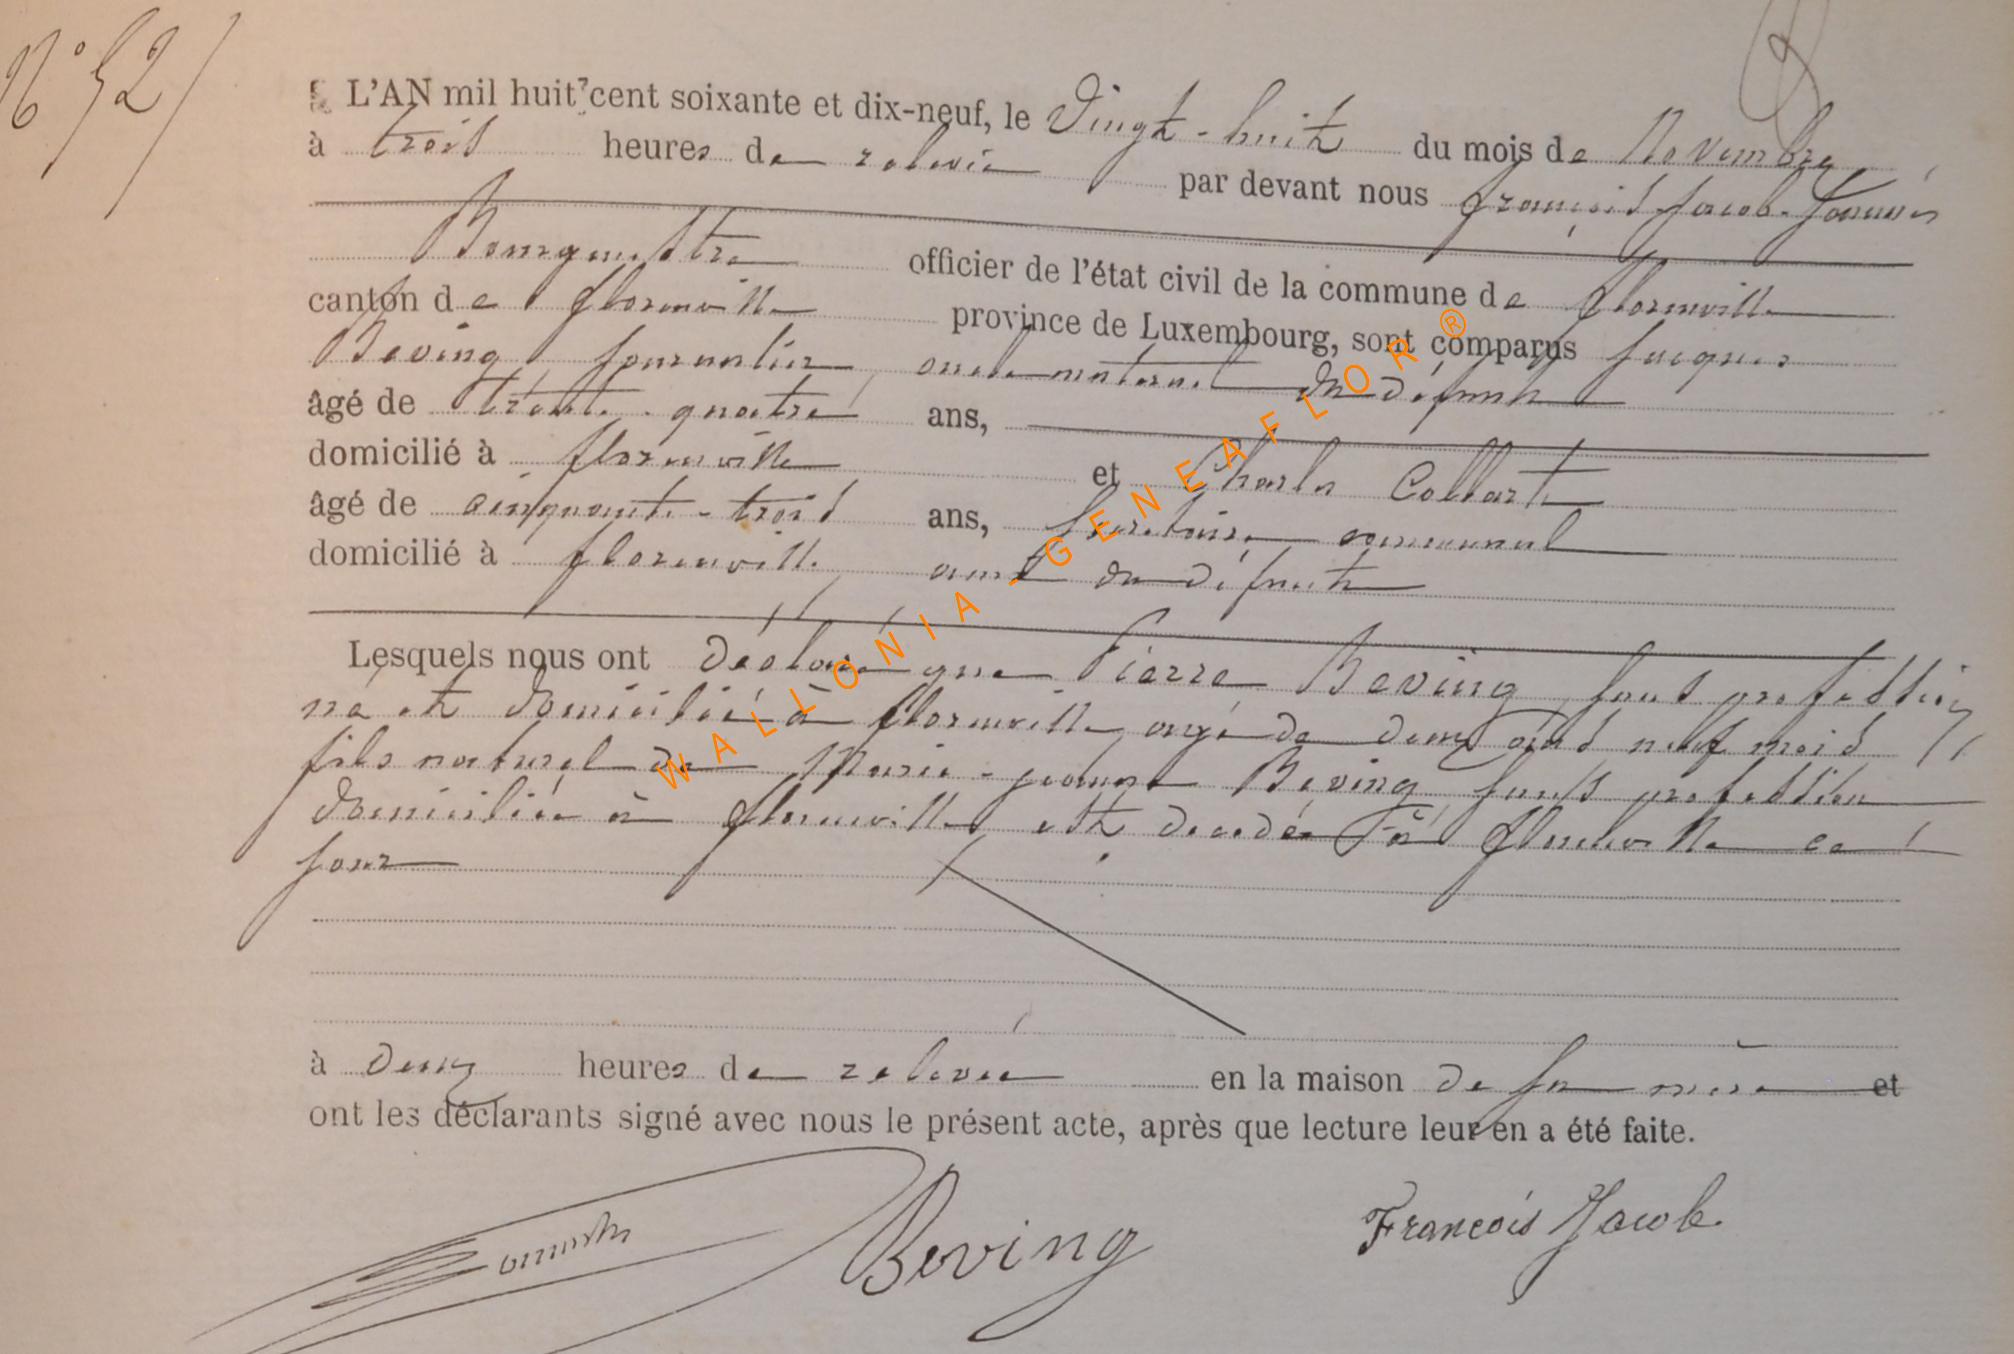 N° 52
L'AN mil huit cent soixante et dix-neuf, le Vingt-huit du mois de Novembre
à trois heures de relevée par devant nous François Jacob
Bourgmestre officier de l'état civil de la commune de Florenville
canton de Florenville province de Luxembourg, sont comparus Jacques
Beving, journalier, oncle maternel du défunt
âgé de trente-quatre ans,
domicilié à Florenville et Charles Collart
âgé de cinquante-trois ans, secrétaire communal
domicilié à Florenville, ami du défunt
Lesquels nous ont déclaré que Pierre Beving, sans profession,
né et domicilié à Florenville, âgé de deux ans neuf mois
fils naturel de Marie-Jeanne Beving, sans profession
domiciliée à Florenville, est décédé à Florenville ce
jour
à deux heures de relevée en la maison de sa mère et
ont les déclarants signé avec nous le présent acte, après que lecture leur en a été faite.
Beving
François Jacob.
WALLONIA-GENEAFLOR®